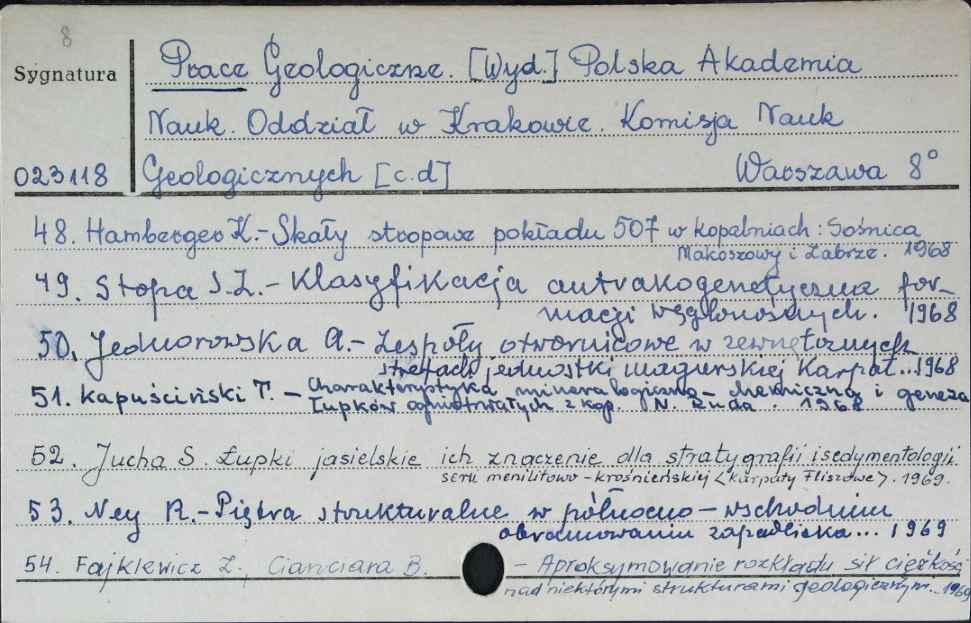 8
Sygnatura
Prace Geologiczne. [Wyd.] Polska Akademia
Nauk. Oddział w Krakowie. Komisja Nauk
023118 Geologicznych [c.d] Warszawa 8°
48. Hamberger K.- Skały stropowe pokładu 507 w kopalniach: Sośnica
Makoszowy i Zabrze. 1968
49. Stopa S.Z.- Klasyfikacja antrakogenetyczna for-
macji węglonośnych. 1968
50. Jednorowska A.- Zespoły otwornicowe w zewnętrznych
strefach jednostki magurskiej Karpat...1968
51. Kapuściński T. - Charakterystyka mineralogiczno-chemiczna i geneza
łupków ogniotrwałych z kop. N. Ruda. 1968
52. Jucha S. Łupki jasielskie ich znaczenie dla stratygrafii i sedymentologii
serii menilitowo-krośnieńskiej <Karpaty Fliszowe>. 1969.
53. Ney R.- Piętra strukturalne w północno-wschodnim
obramowaniu zapadliska... 1969
54. Fajklewicz Z., Cianciara B. - Aproksymowanie rozkładu sił ciężkości
nad niektórymi strukturami geologicznym...1969